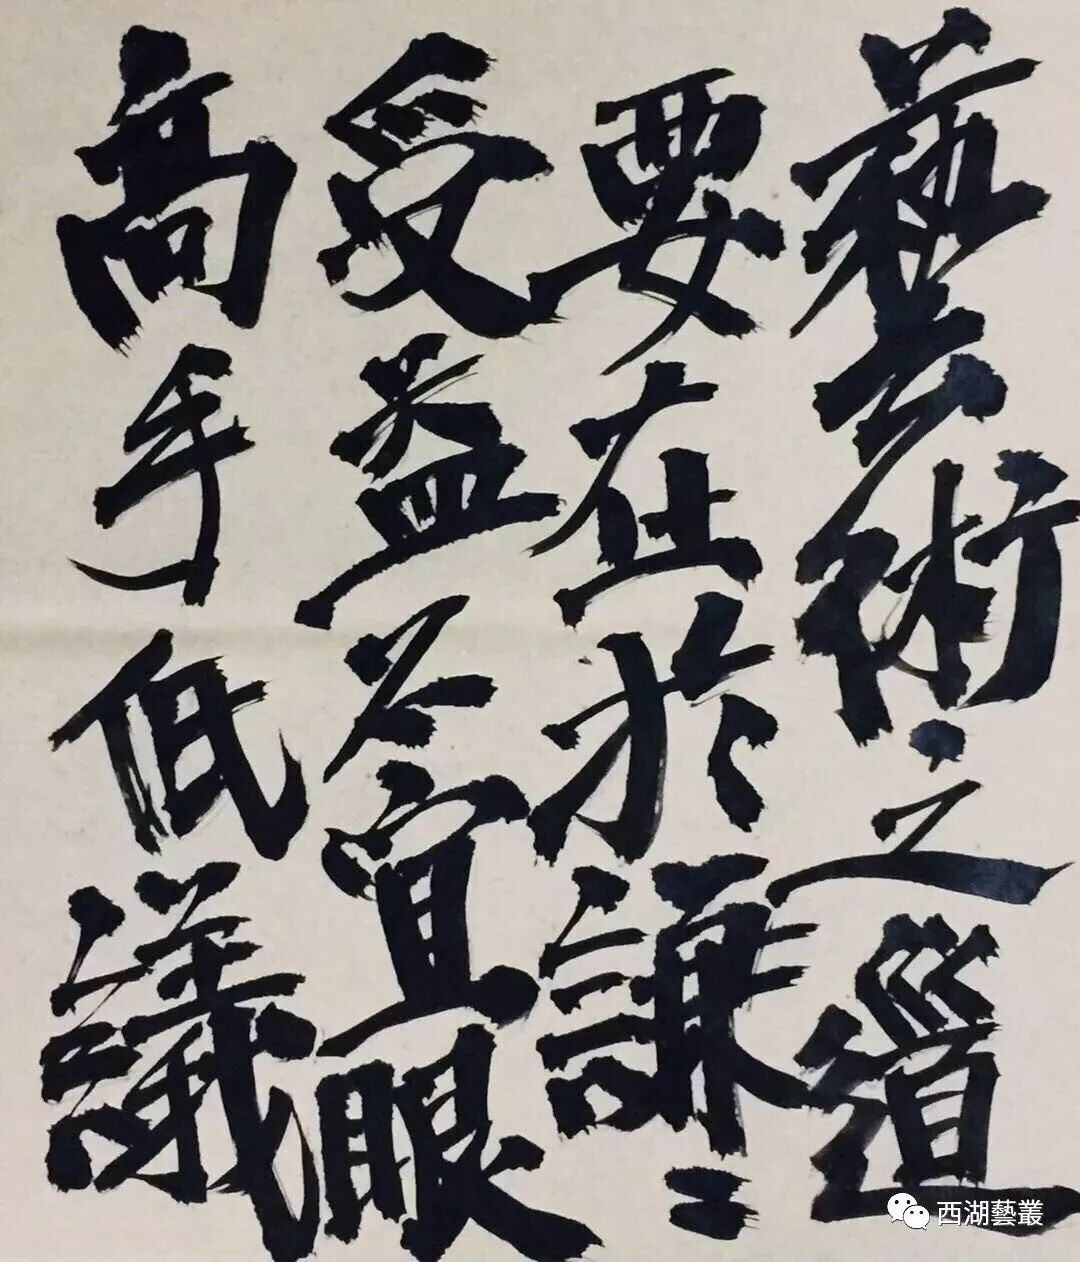 藝術之道
要在於謙〻
受益不宜眼
高手低議
西湖藝叢